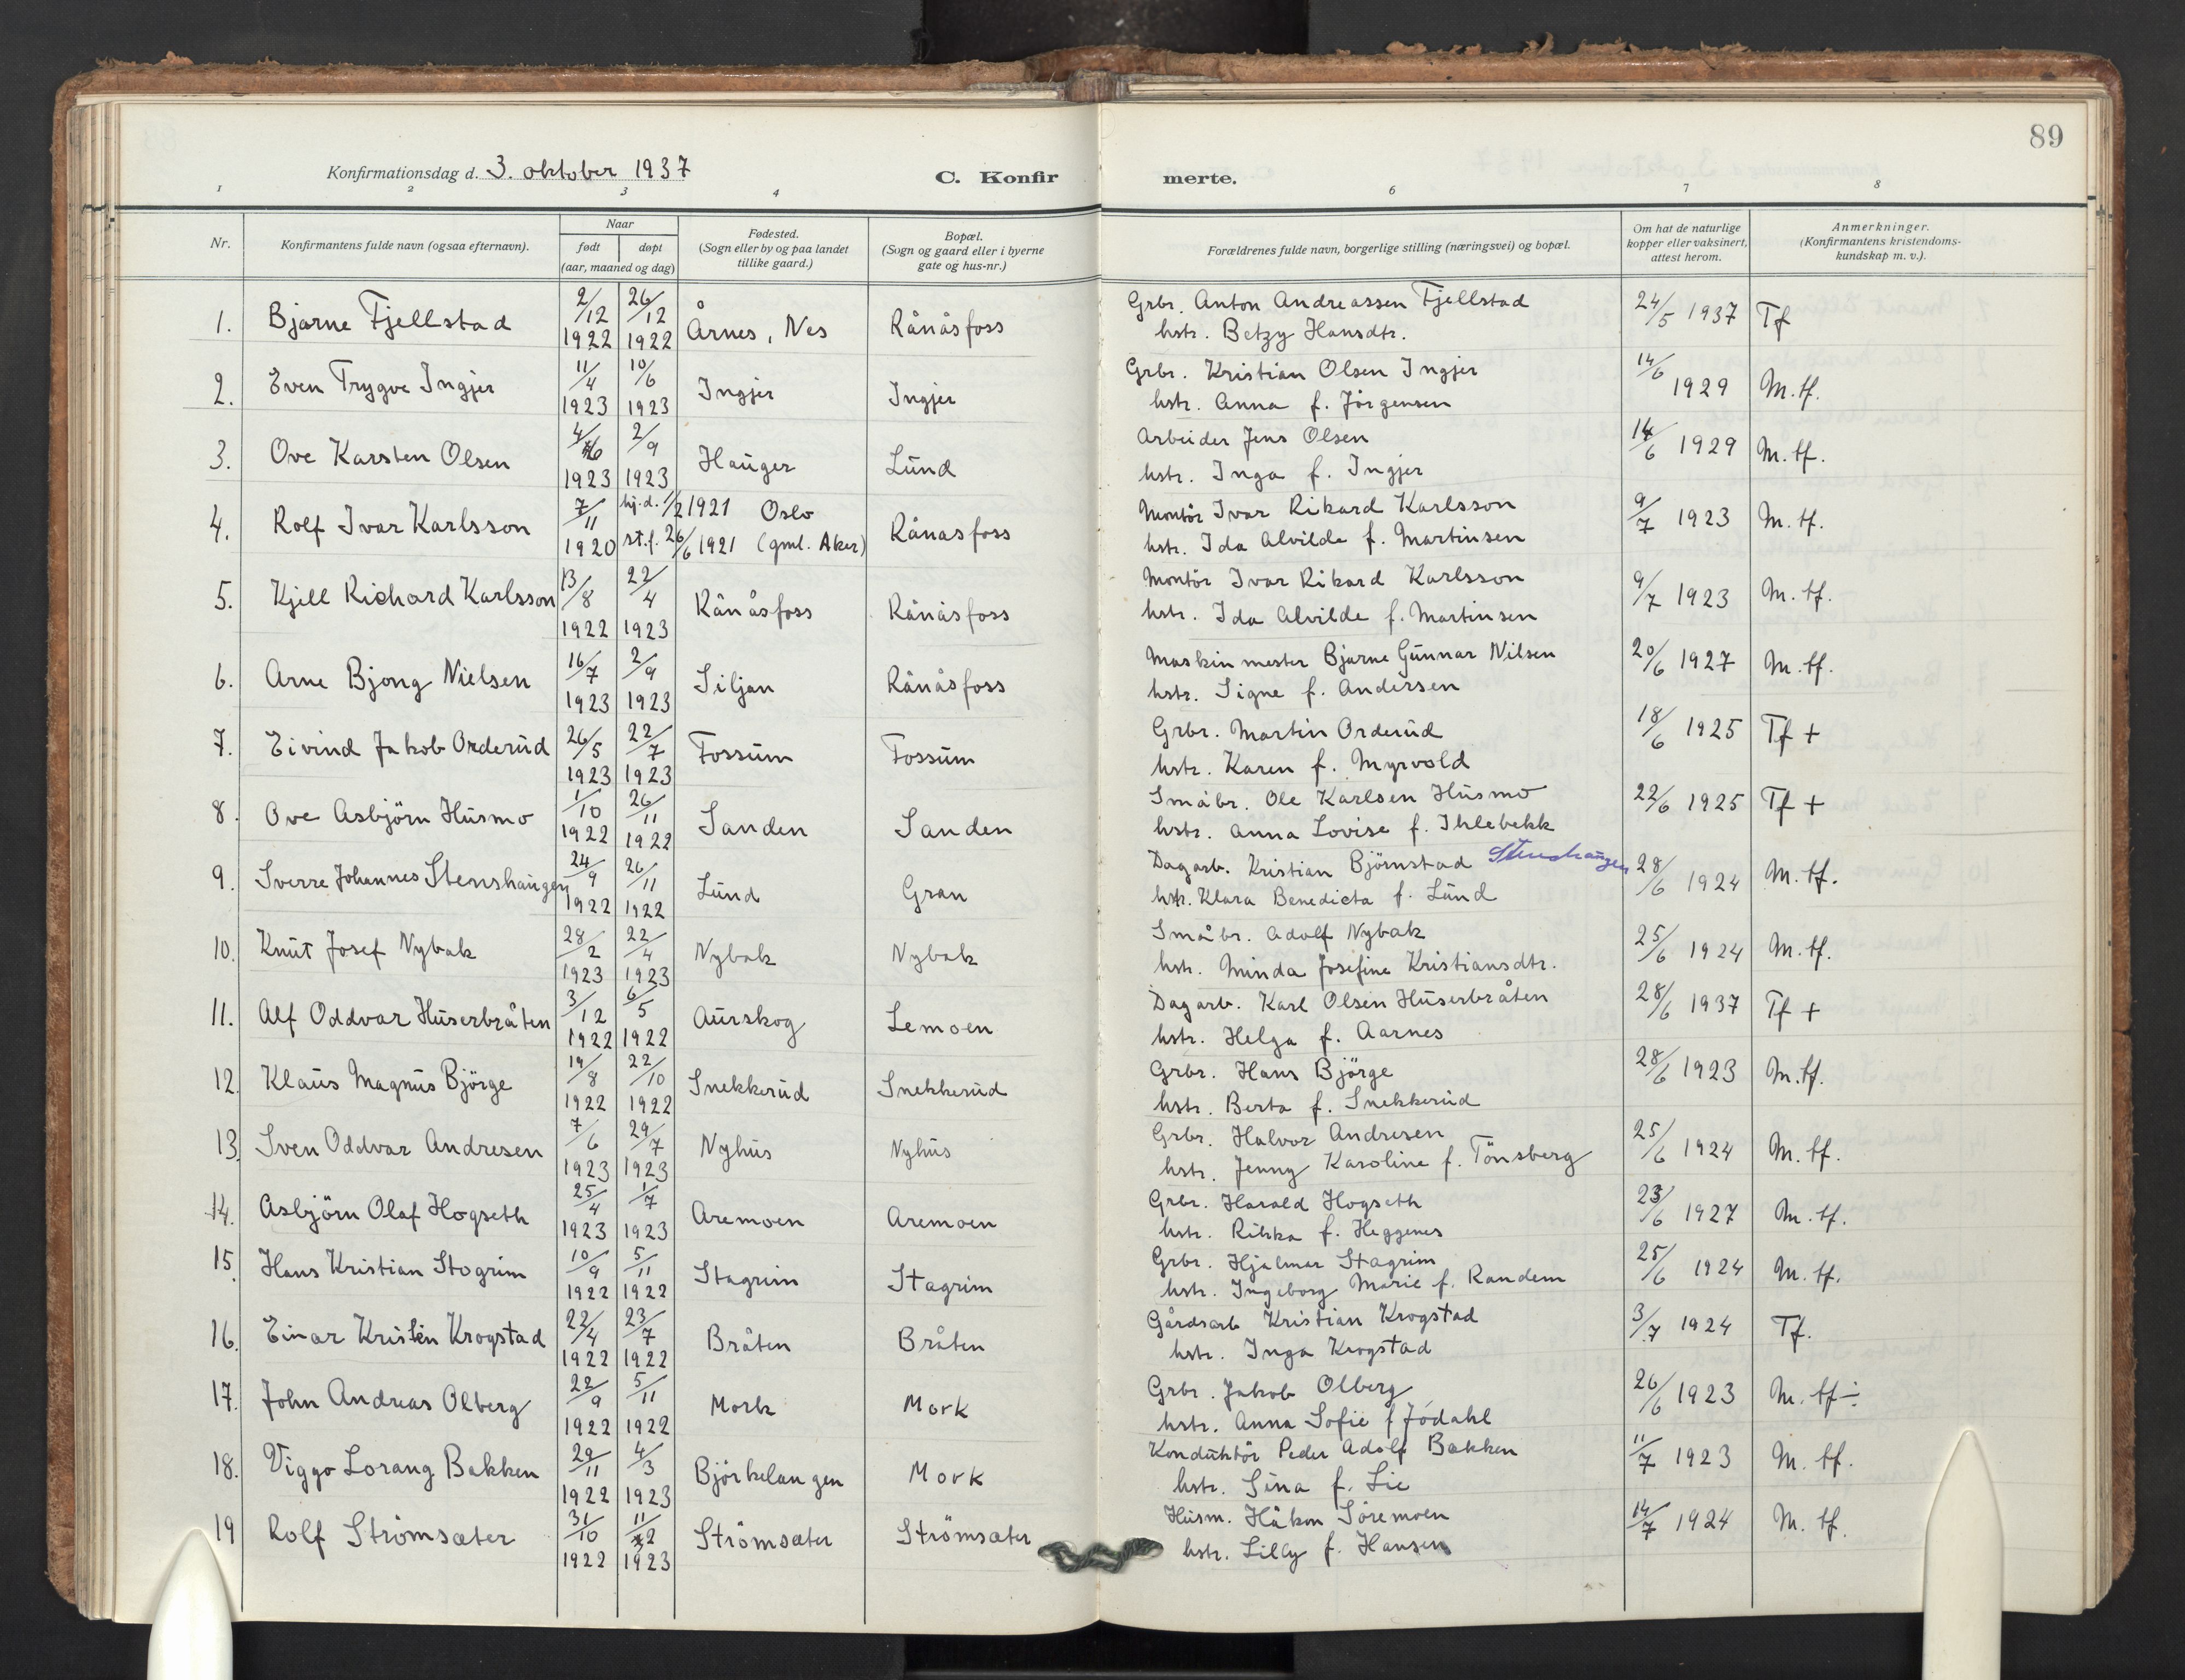 89
Konfirmationsdag d. 3. oktober 1937
C. Konfirmerte.
1 2 3 4 6 7 8
Nr.
Konfirmantens fulde navn (ogsaa efternavn).
Naar
født døpt
(aar, maaned og dag)
Fødested.
(Sogn eller by og paa landet
tillike gaard.)
Bopæl.
(Sogn og gaard eller i byerne
gate og hus-nr.)
Forældrenes fulde navn, borgerlige stilling (næringsvei) og bopæl.
Om hat de naturlige
kopper eller vaksinert,
attest herom.
Anmerkninger.
(Konfirmantens kristendoms-
kundskap m. v.).
1. Bjarne Fjellstad 2/12 1922 26/12 1922 Årnes, Nes Rånåsfoss Grbr. Anton Andreassen Fjellstad 24/5 1937 Tf
hstr. Betzy Hansdtr.
2. Even Trygve Ingjer 11/4 1923 10/6 1923 Ingjer Ingjer Grbr. Kristian Olsen Ingjer 14/6 1929 M. tf.
hstr. Anna f. Jörgensen
3. Ove Karsten Olsen 4/6 1923 2/9 1923 Haŭger Lŭnd Arbeider Jens Olsen 14/6 1929 M. tf.
hstr. Inga f. Ingjer
4. Rolf Ivar Karlsson 7/11 1920 hj.d. 1/2 1921 Oslo Rånåsfoss Montör Ivar Rikard Karlsson 9/7 1923 M. tf.
st.f. 26/6 1921 (gml. Aker) hstr. Ida Alvilde f. Martinsen
5. Kjell Richard Karlsson 13/8 1922 22/4 1923 Rånåsfoss Rånåsfoss Montör Ivar Rikard Karlsson 9/7 1923 M. tf.
hstr. Ida Alvilde f. Martinsen
6. Arne Bjong Nielsen 16/7 1923 2/9 1923 Siljan Rånåsfoss Maskinmester Bjarne Gŭnnar Nilsen 20/6 1927 M. tf.
hstr. Signe f. Andersen
7. Eivind Jakob Orderŭd 26/5 1923 22/7 1923 Fossŭm Fossŭm Grbr. Martin Orderŭd 18/6 1925 Tf +
hstr. Karen f. Myrvold
8. Ove Asbjörn Hŭsmo 1/10 1922 26/11 1922 Sanden Sanden Småbr. Ole Karlsen Hŭsmo 22/6 1925 Tf +
hstr. Anna Lovise f. Ihlebekk
9. Sverre Johannes Stenshaŭgen 24/9 1922 26/11 1922 Lŭnd Gran Dagarb. Kristian Björnstad Stenshaŭgen 28/6 1924 M. tf.
hstr. Klara Benedicta f. Lŭnd
10. Knŭt Josef Nybak 28/2 1923 22/4 1923 Nybak Nybak Småbr. Adolf Nybak 25/6 1924 M. tf.
hstr. Minda Josefine Kristiansdtr.
11. Alf Oddvar Hŭserbråten 3/12 1922 6/5 1922 Aŭrskog Lemoen Dagarb. Karl Olsen Hŭserbråten 28/6 1937 Tf +
hstr. Helga f. Aarnes
12. Klaŭs Magnŭs Björge 19/8 1922 22/10 1922 Snekkerŭd Snekkerŭd Grbr. Hans Björge 28/6 1923 M. tf.
hstr. Berta f. Snekkerŭd
13. Sven Oddvar Andresen 7/6 1923 29/7 1923 Nyhŭs Nyhŭs Grbr. Halvor Andresen 25/6 1924 M. tf.
hstr. Jenny Karoline f. Tönsberg
14. Asbjörn Olaf Hogseth 25/4 1923 1/7 1923 Aremoen Aremoen Grbr. Harald Hogseth 23/6 1927 M. tf.
hstr. Rikka f. Heggenes
15. Hans Kristian Stogrim 10/9 1922 5/11 1922 Stagrim Stagrim Grbr. Hjalmar Stagrim 25/6 1924 M. tf.
hstr. Ingeborg Marie f. Randem
16. Einar Kristen Krogstad 22/4 1922 23/7 1922 Bråten Bråten Gårdsarb Kristian Krogstad 3/7 1924 Tf.
hstr. Inga Krogstad
17. John Andreas Olberg 22/9 1922 5/11 1922 Mork Mork Grbr. Jakob Olberg 26/6 1923 M. tf ÷
hstr. Anna Sofie f Jödahl
18. Viggo Lorang Bakken 29/11 1922 4/3 1923 Björkelangen Mork Kondŭktör Peder Adolf Bakken 11/7 1923 M. tf.
hstr. Sina f. Lie
19 Rolf Strömsæter 31/10 1922 11/2 1923 Strömsæter Strömsæter Hŭsm. Håkon Söremoen 14/7 1924 M. tf.
hstr. Lilly f. Hansen